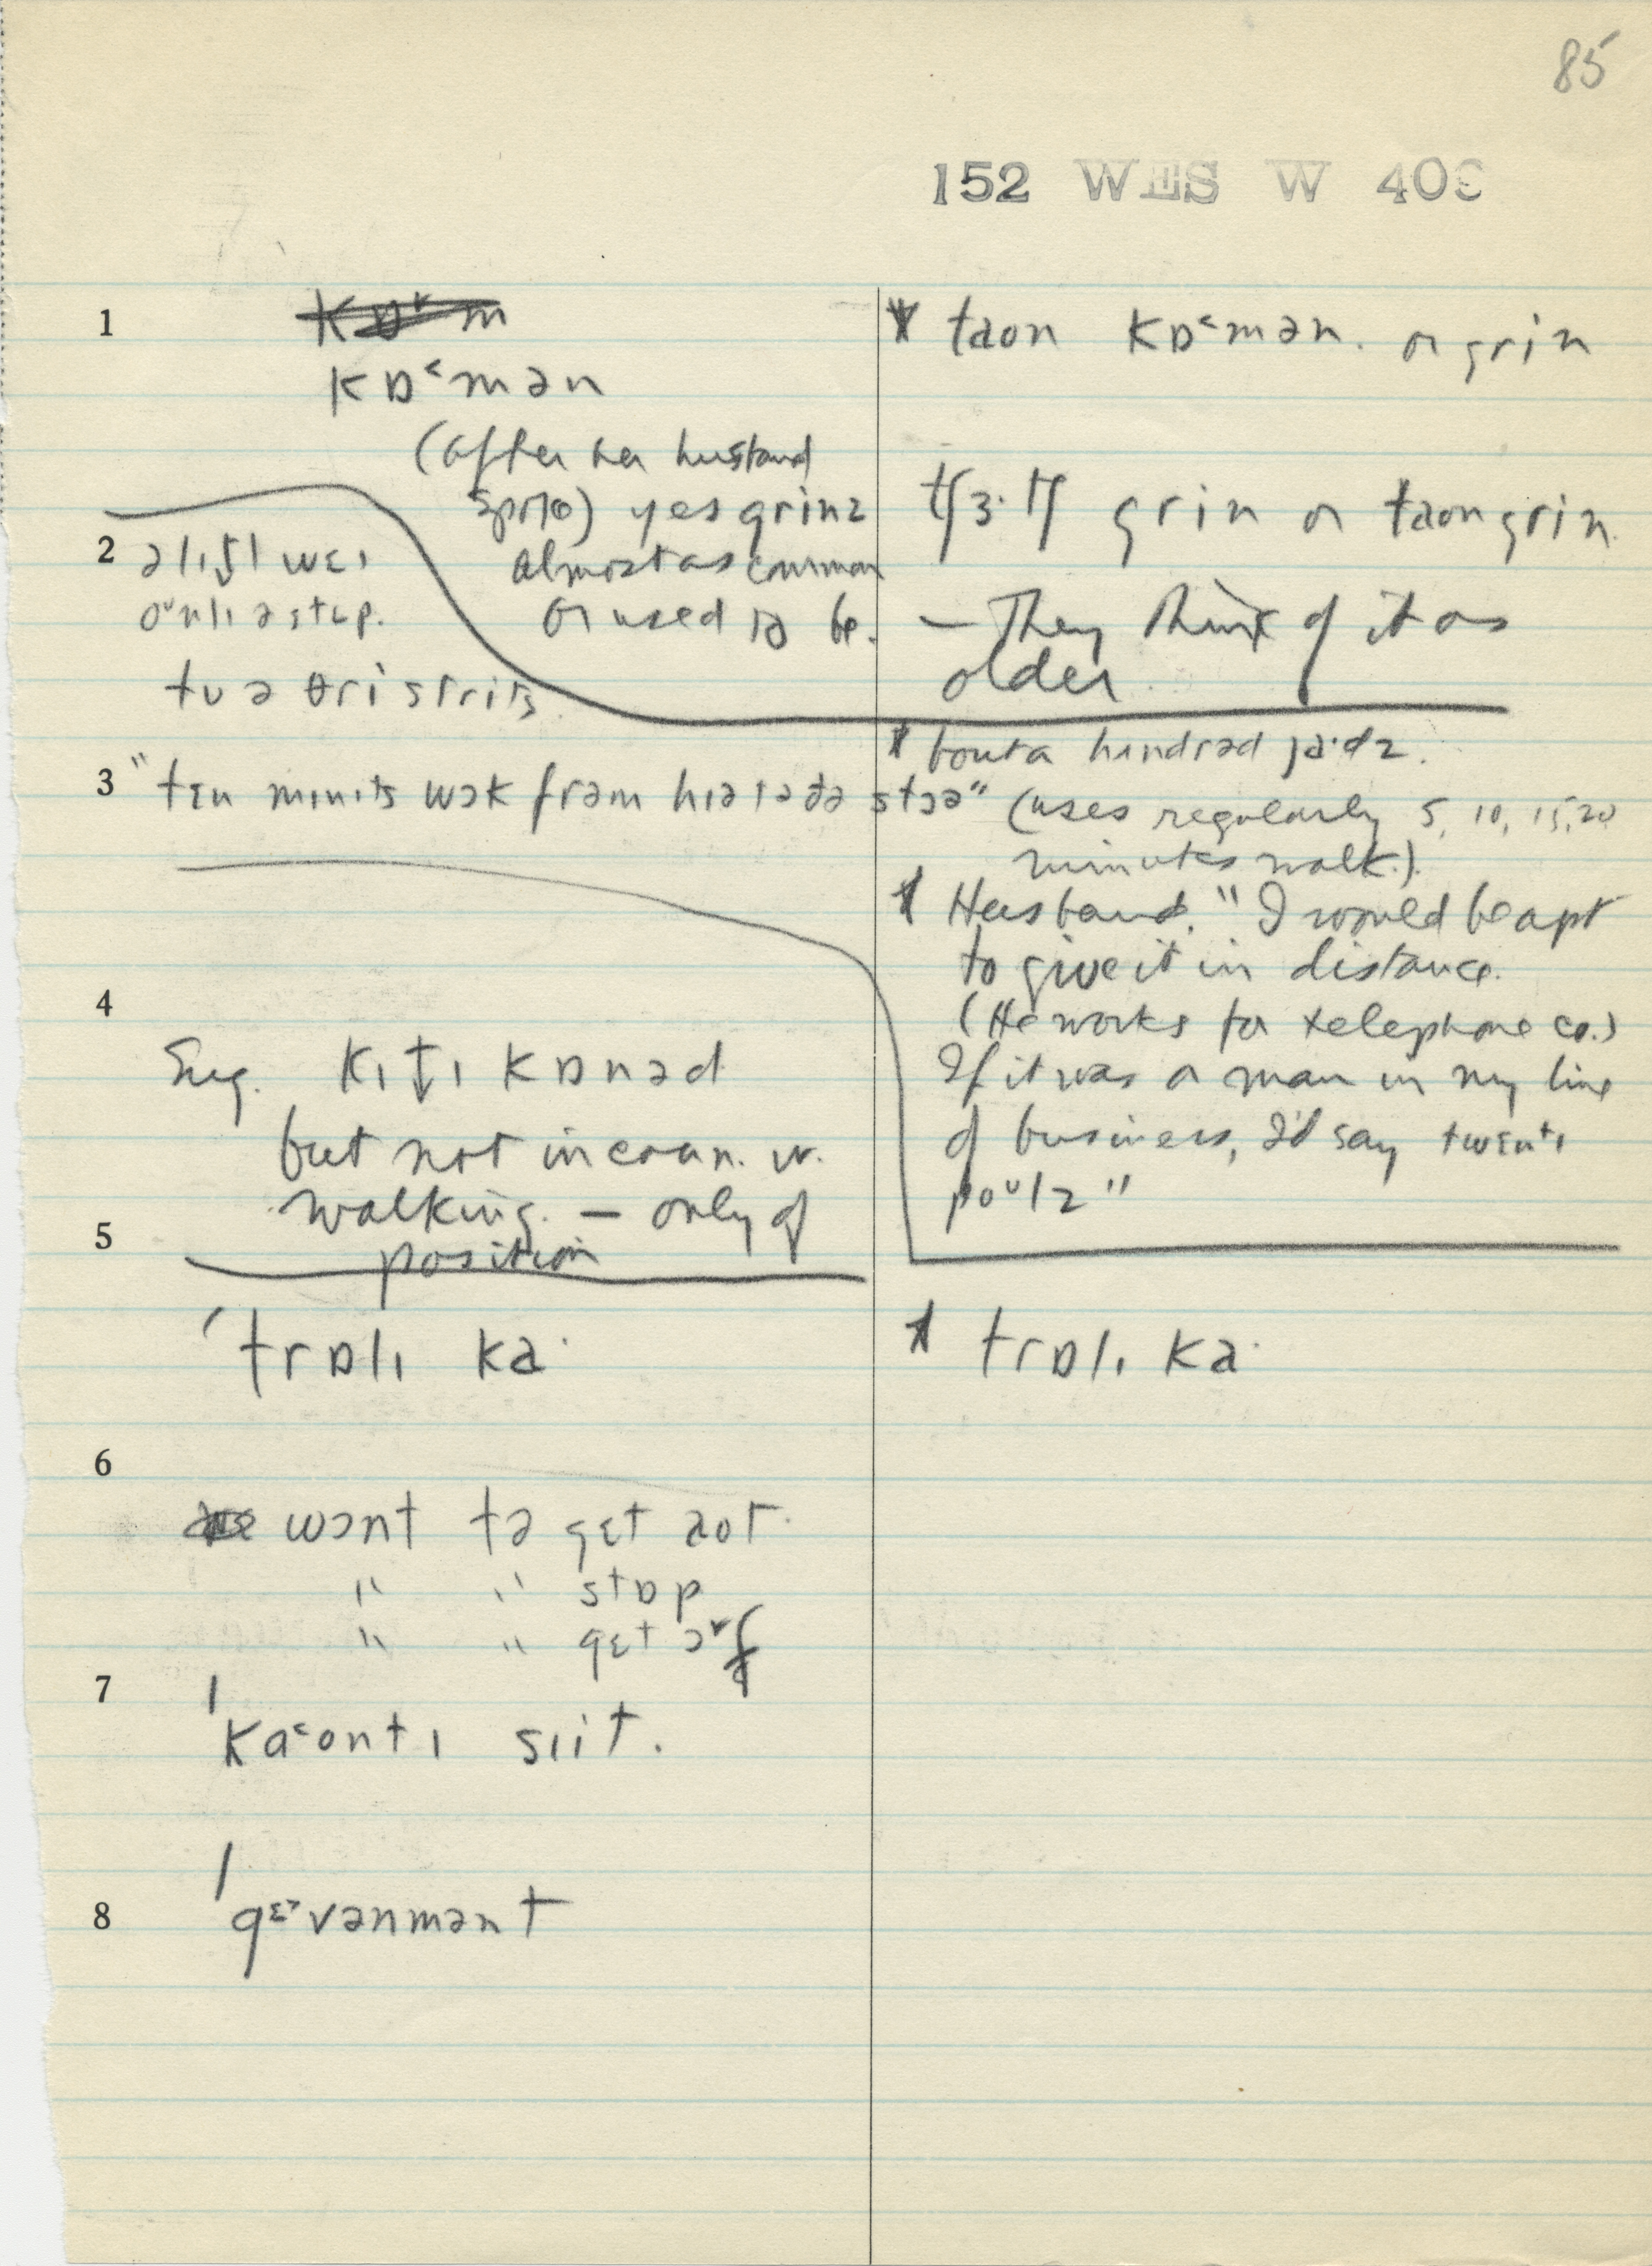 85
152 WES W 403
1
kɒ˂mən
(after her husband
spoke) yes grinz
almost as common
or used to be.
* taon kɒ˂mən. or grin
tʃɜ·tʃ grin or taon grin
— They think of it as
older.
2 ə lɪtl weɪ
oᵘnlɪ ə step.
tu ə θri strits
3 "ten mɪnɪts wɔk frəm hɪə tə ðə stɔə"
* bout a hundrəd ja·dz.
(uses regularly 5, 10, 15, 20
minutes walk.)
* Husband. "I would be apt
to give it in distance.
(He works for telephone co.)
If it was a man in my line
of business, I'd say twentɪ
poᵘlz"
4
Sug. kɪtɪ kɒnəd
but not in conn. w.
walking. — only of
position
5
ˈtrɒlɪ ka·
* trɒlɪ ka·
6
wɔnt tə get aot.
" " stɒp
" " get ɔ˅f
7
ˈka˂ontɪ sɪit.
8
ˈgɛ˃vənmənt